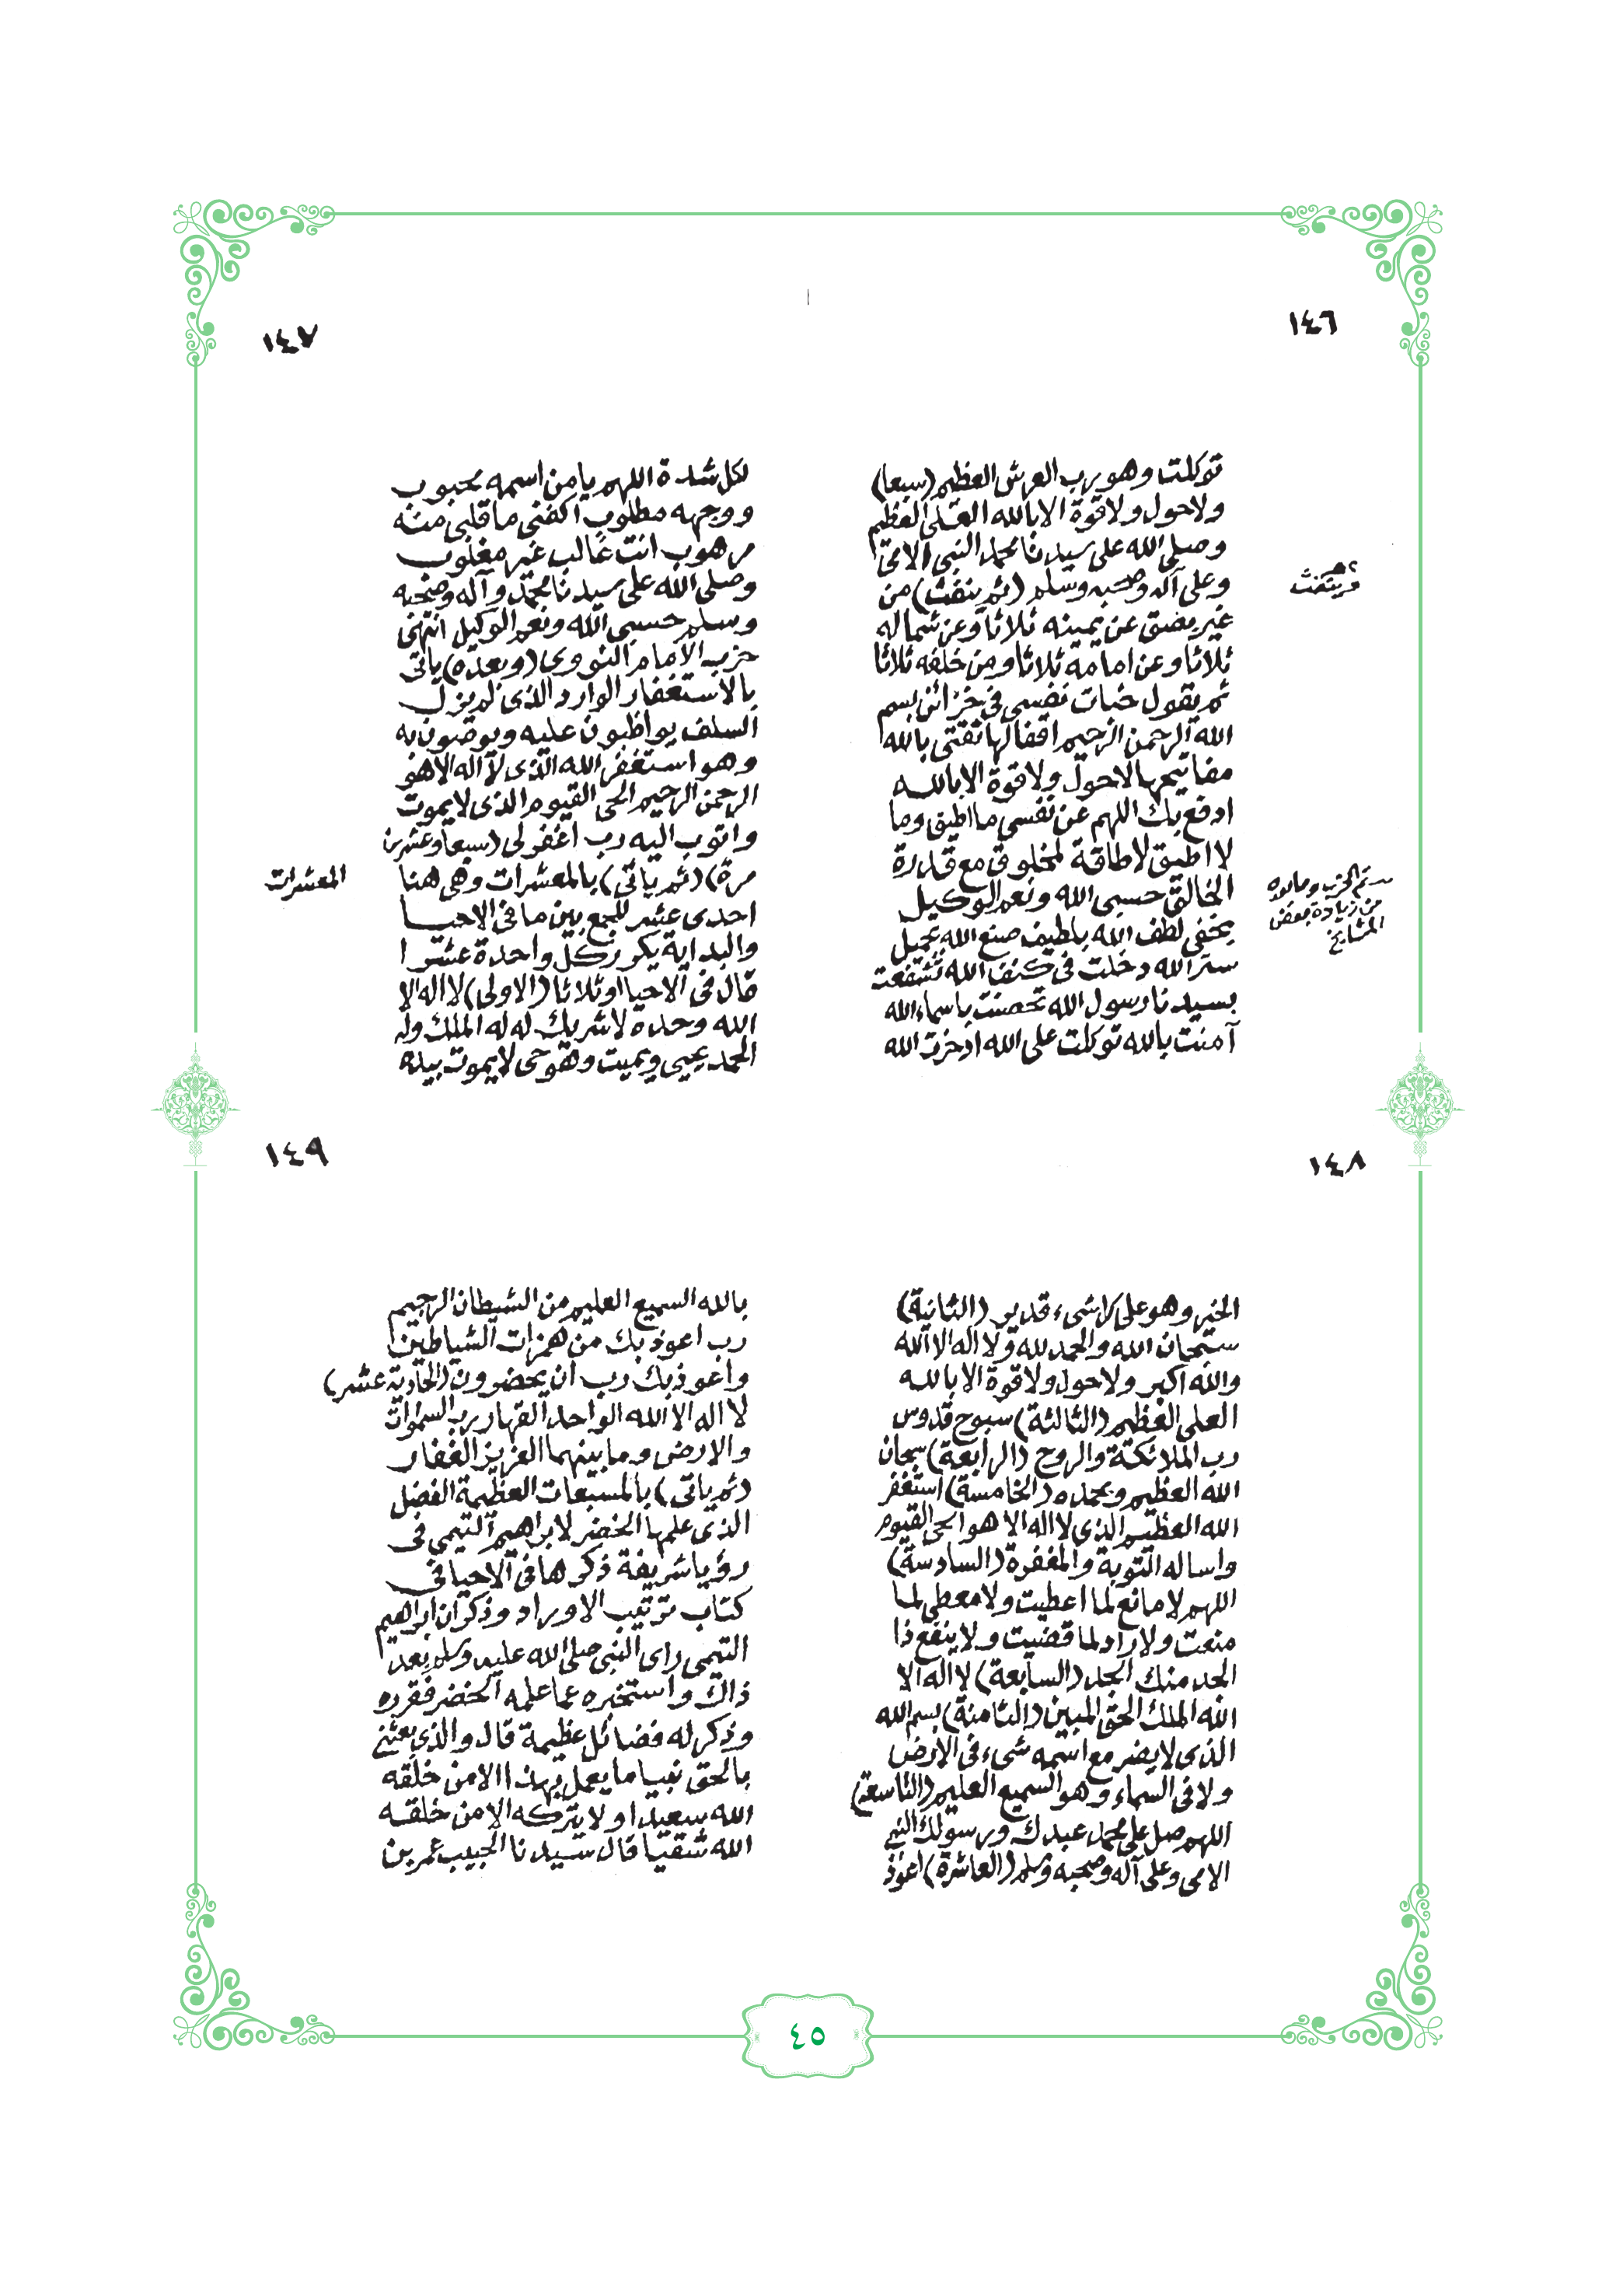 ١٤٦
توكلت وهو رب العرش العظيم (سبعا)
ولا حول ولا قوة الا بالله العلى العظيم
وصلى الله على سيدنا محمد النبى الامى
وعلى آله وصحبه وسلم (ثم ينفث) من
غير بصق عن يمينه ثلاثا وعن شماله
ثلاثا وعن امامه ثلاثا ومن خلفه ثلاثا
ثم يقول خبات نفسى فى خزائن بسم
الله الرحمن الرحيم اقفالها ثقتى بالله
مفاتيحها لا حول ولا قوة الا بالله
ادفع بك اللهم عن نفسى ما اطيق وما
لا اطيق لا طاقة لمخلوق مع قدرة
الخالق حسبى الله ونعم الوكيل
بخفى لطف الله بلطيف صنع الله بجميل
ستر الله دخلت فى كنف الله تشفعت
بسيدنا رسول الله تحصنت باسماء الله
آمنت بالله توكلت على الله ادخرت الله
ينفث
تم الحزب وما بعده
من زيادة بعض
المشايخ
١٤٧
لكل شدة اللهم يا من اسمه محبوب
ووجهه مطلوب اكفنى ما قلبى منه
مرهوب انت غالب غير مغلوب
وصلى الله على سيدنا محمد وآله وصحبه
وسلم حسبى الله ونعم الوكيل انتهى
حزب الامام النووى (وبعده) ياتى
بالاستغفار الوارد الذى لم يزل
السلف يواظبون عليه ويوصون به
وهو استغفر الله الذى لا اله الا هو
الرحمن الرحيم الحى القيوم الذى لا يموت
واتوب اليه رب اغفر لى (سبعا وعشرين
مرة) (ثم ياتى) بالمعشرات وهى هنا
احدى عشر للجمع بين ما فى الاحيا
والبداية يكرر كل واحدة عشرا
قال فى الاحيا او ثلاثا (الاولى) لا اله الا
الله وحده لا شريك له له الملك وله
الحمد يحيى ويميت وهو حى لا يموت بيده
المعشرات
١٤٨
الخير وهو على كل شىء قدير (الثانية)
سبحان الله والحمد لله ولا اله الا الله
والله اكبر ولا حول ولا قوة الا بالله
العلى العظيم (الثالثة) سبوح قدوس
رب الملائكة والروح (الرابعة) سبحان
الله العظيم وبحمده (الخامسة) استغفر
الله العظيم الذى لا اله الا هو الحى القيوم
واساله التوبة والمغفرة (السادسة)
اللهم لا مانع لما اعطيت ولا معطى لما
منعت ولا راد لما قضيت ولا ينفع ذا
الجد منك الجد (السابعة) لا اله الا
الله الملك الحق المبين (الثامنة) بسم الله
الذى لا يضر مع اسمه شىء فى الارض
ولا فى السماء وهو السميع العليم (التاسعة)
اللهم صل على محمد عبدك ورسولك النبى
الامى وعلى آله وصحبه وسلم (العاشرة) اعوذ
١٤٩
بالله السميع العليم من الشيطان الرجيم
رب اعوذ بك من همزات الشياطين
واعوذ بك رب ان يحضرون (الحادية عشر)
لا اله الا الله الواحد القهار رب السموات
والارض وما بينهما العزيز الغفار
(ثم ياتى) بالمسبعات العظيمة الفضل
الذى علمها الخضر لابراهيم التيمى فى
رؤيا شريفة ذكرها فى الاحيا فى
كتاب ترتيب الاوراد وذكر ان ابراهيم
التيمى راى النبى صلى الله عليه وسلم بعد
ذاك واستخبره عما علمه الخضر فقرره
وذكر له فضائل عظيمة قال والذى بعثنى
بالحق نبيا ما يعمل بهذا الا من خلقه
الله سعيدا ولا يتركه الا من خلقه
الله شقيا قال سيدنا الحبيب عمر بن
٤٥